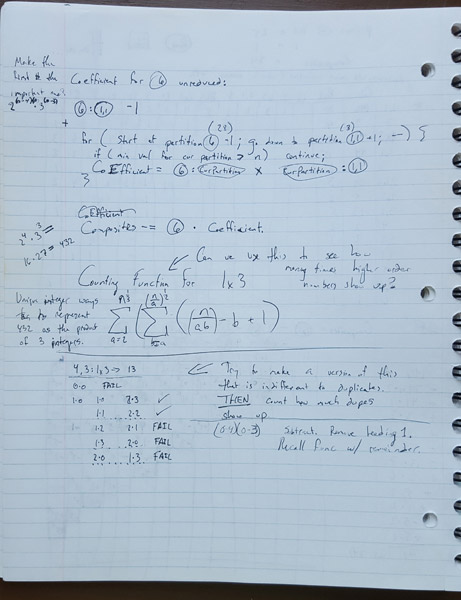 Make the
the Coefficient for 6 unreduced:
important
6 : 1,1 -1
+
(28) (3)
for ( Start at partition 6 -1; go down to partition 1,1 +1; --) {
if (min val for cur partition > n) continue;
} CoEfficient = 6 : CurPartition x CurPartition : 1,1
Coefficient
Composites -= 6 · Coefficient.
2^4 · 3^3 =
16 · 27 = 432
Can we use this to see how
many times higher order
numbers show up?
Counting Function for 1x3
Unique integer ways
to represent
432 as the product
of 3 integers.
∑ a=2 ( ∑ b=a ( (n/ab) - b + 1 )
4,3 : 1x3 → 13
0·0 FAIL
1·0 1·0 2·3 ✓
1·1 2·2 ✓
1·2 2·1 FAIL
1·3 2·0 FAIL
2·0 1·3 FAIL
Try to make a version of this
that is indifferent to duplicates.
THEN count how much dupes
show up.
(0-4)(0-3) Subtract. Remove leading 1.
Recall Func w/ remainder.